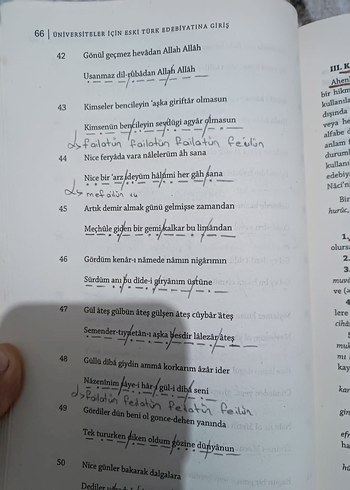 66 | ÜNİVERSİTELER İÇİN ESKİ TÜRK EDEBİYATINA GİRİŞ
42 Gönül geçmez hevâdan Allah Allâh
Usanmaz dil-rübâdan Allah Allâh
43 Kimseler bencileyin 'aşka giriftâr olmasun
Kimsenün bencileyin sevdügi agyâr olmasun
fâilâtün fâilâtün fâilâtün feûlün
44 Nice feryâda vara nâlelerüm âh sana
Nice bir 'arz ideyüm hâlümi her gâh sana
mefâtün
45 Artık demir almak günü gelmişse zamandan
Meçhûle giden bir gemi kalkar bu limândan
46 Gördüm kenâr-ı nâmede nâmın nigârımın
Sürdüm anı bu dide-i giryânım üstüne
47 Gül âteş gülbün âteş gülşen âteş cûybâr âteş
Semender-tıynetân-ı aşka besdir lâlezâr âteş
48 Güllü dîbâ giydin ammâ korkarım âzâr ider
Nâzenînim sâye-i hâr-ı gül-i dîbâ seni
49 Gördiler dün beni ol gonce-dehen yanında
Tek tururken diken oldum gözine dünyânun
50 Nice günler bakarak dalgalara
Dediler
III. K
bir hikm
kullanıla
dışında
veya he
alfabe d
anlam f
duruml
kullanı
edebiy
Nâci'n
Bir
hurûc,
1.
olursa
2.
3.
ve (
4
lere